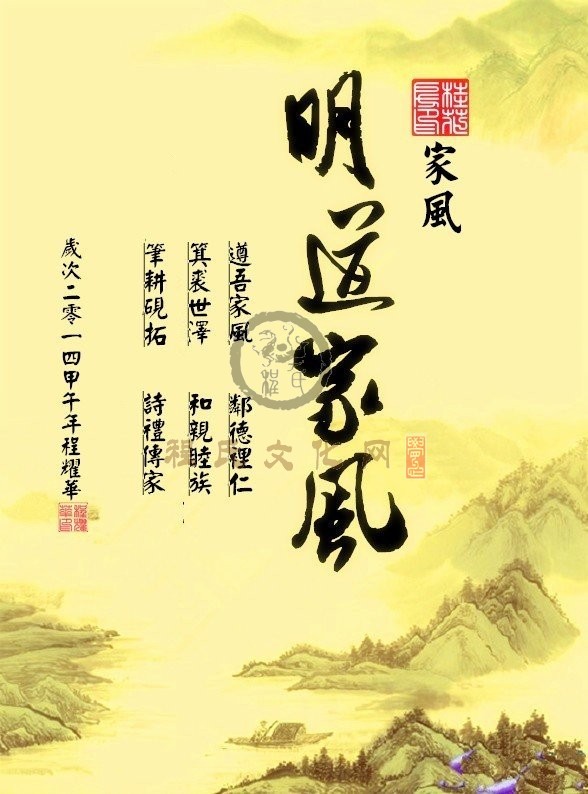 家風
明道家風
遵吾家風 鄰德裡仁
箕裘世澤 和親睦族
筆耕硯拓 詩禮傳家
歲次二零一四甲午年程耀華
程氏文化网